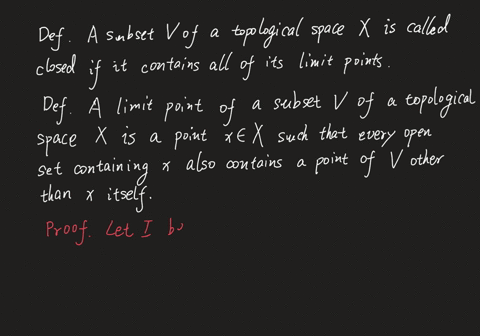 Def. A subset V of a topological space X is called
closed if it contains all of its limit points.
Def. A limit point of a subset V of a topological
space X is a point x∈X such that every open
set containing x also contains a point of V other
than x itself.
Proof. Let I